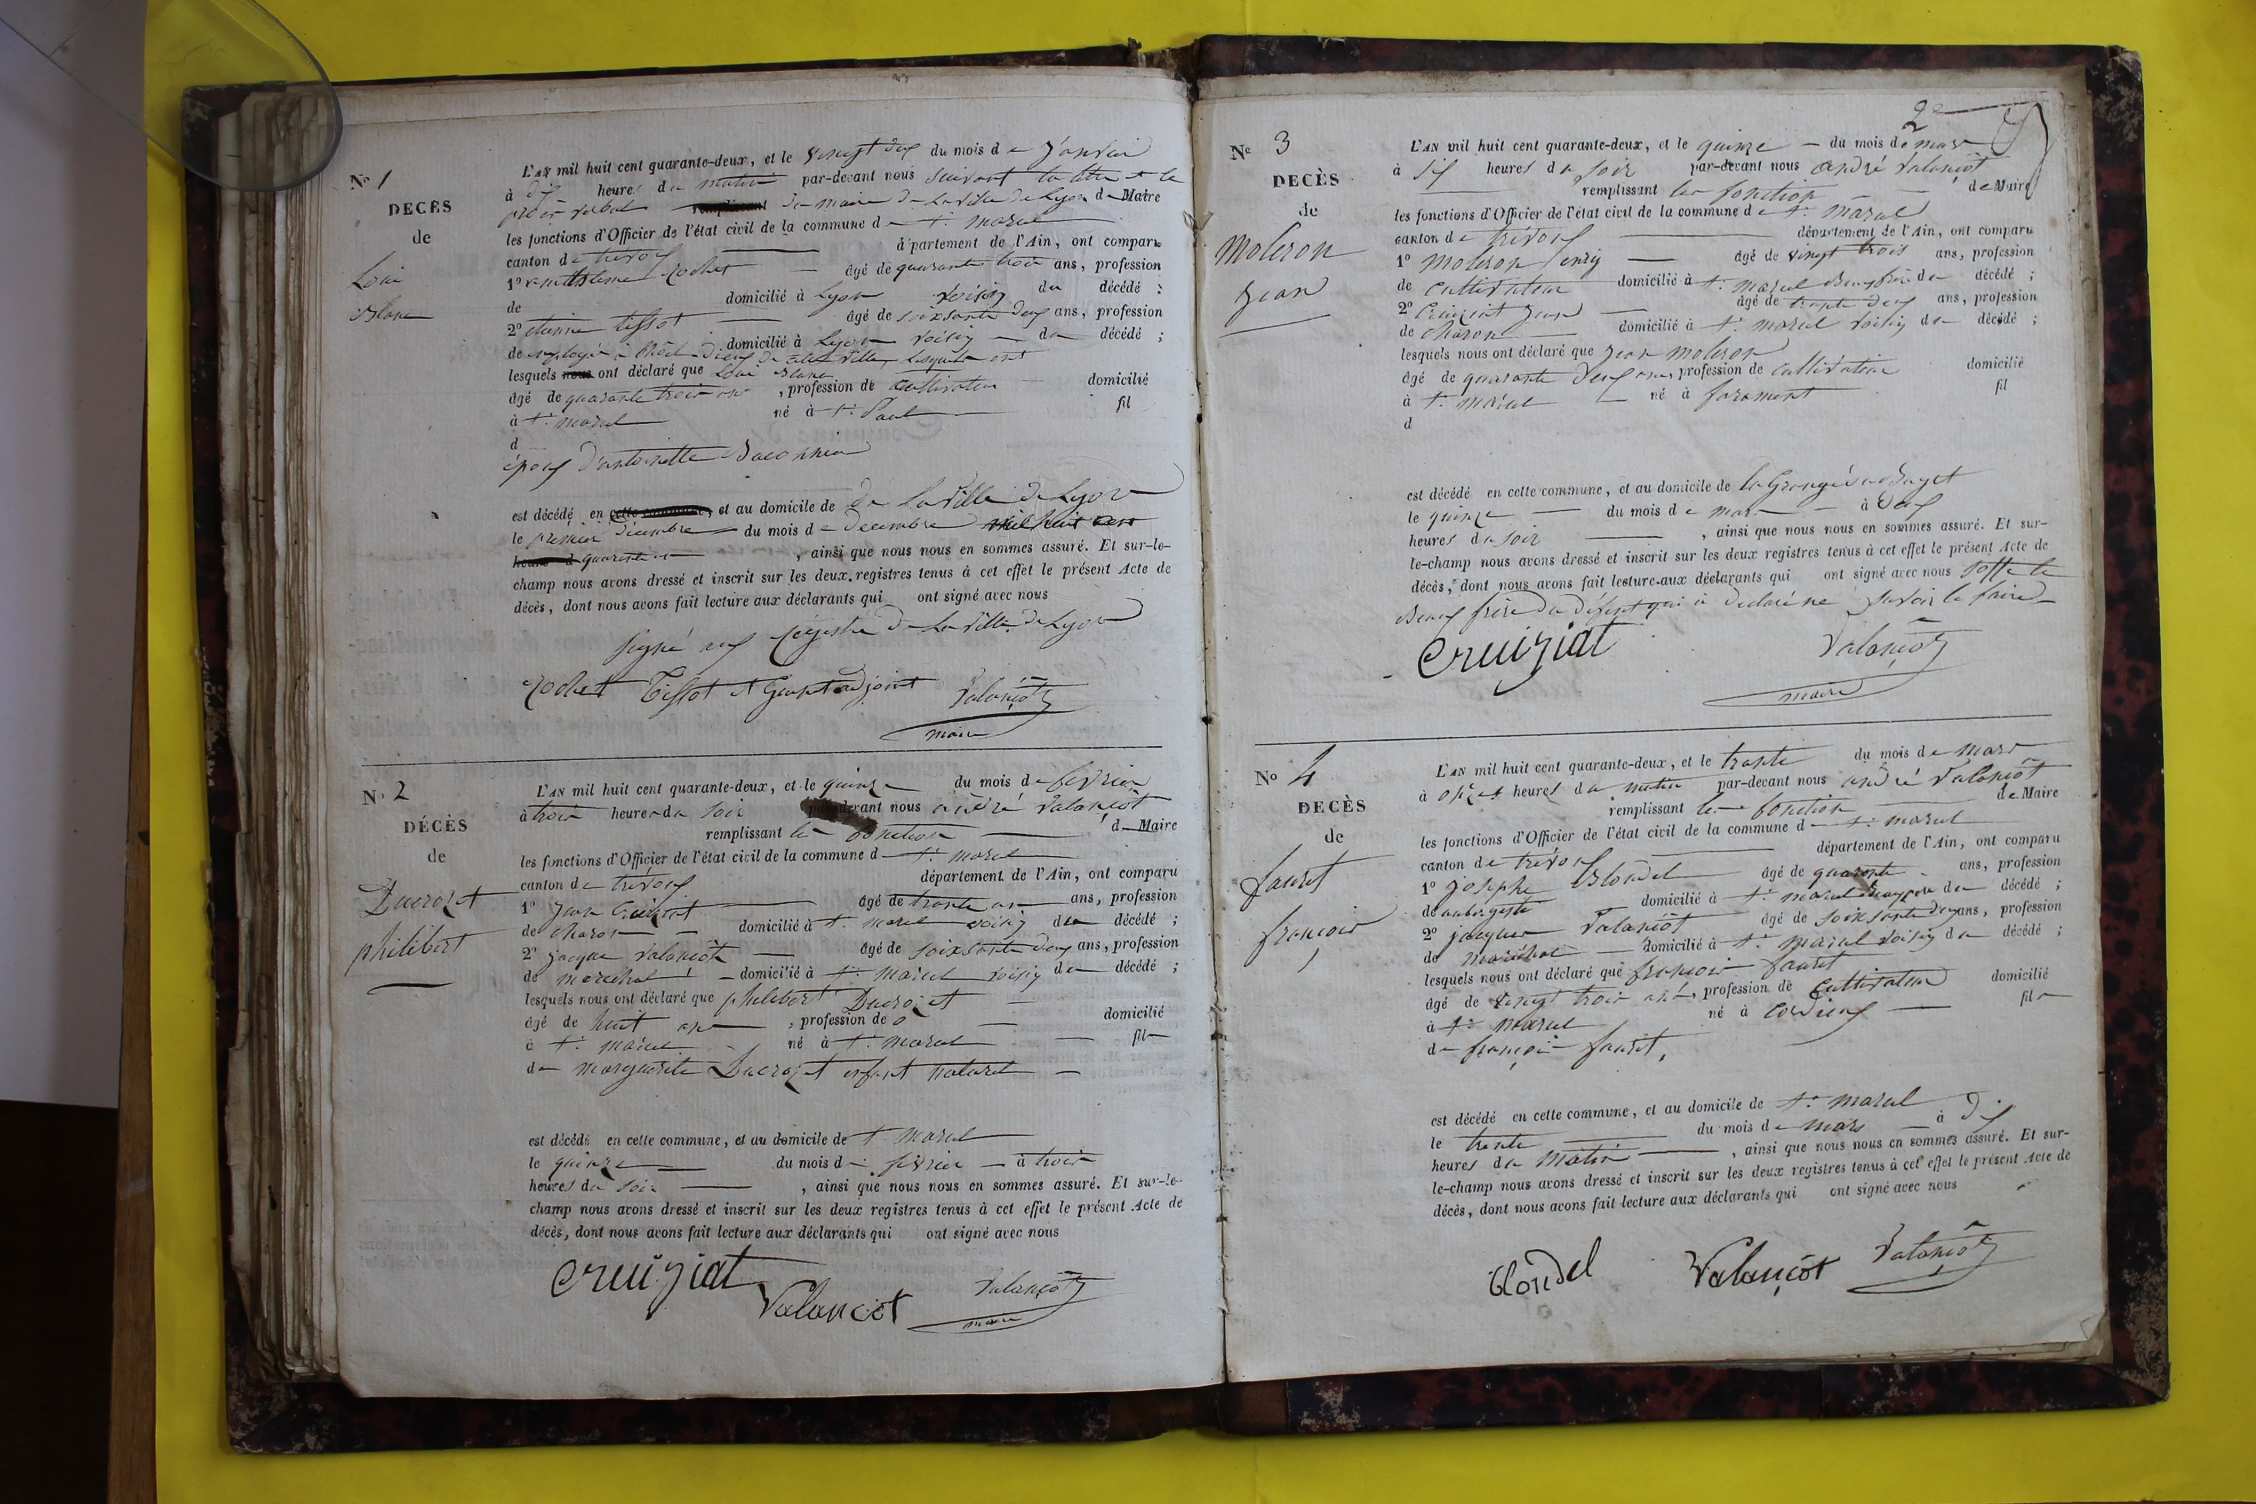 N.º 1
DECÈS
de
Loui
Blanc
L'AN mil huit cent quarante-deux, et le vingt deux du mois de Janvier
à dix heures du matin par-devant nous suivant la lettre et le
procès verbal remplissant du maire de La ville de Lyon de Maire
les fonctions d'Officier de l'état civil de la commune de St. marcel
canton de trévoux département de l'Ain, ont comparu
1º Rochet âgé de quarante trois ans, profession
de domicilié à Lyon voisin du décédé ;
2º etienne tissot âgé de soixsante deux ans, profession
de employé à l'hôtel-Dieu de domicilié à Lyon voisin du décédé ;
lesquels nous ont déclaré que Loui Blanc
âgé de quarante trois ans , profession de cultivateur domicilié
à St. marcel né à St. Paul fil
d
époux d'antoinette
est décédé en cette commune, et au domicile de de La ville de Lyon
le premier Décembre du mois de Décembre mil huit cent
heures d quarante un , ainsi que nous nous en sommes assuré. Et sur-le-
champ nous avons dressé et inscrit sur les deux registres tenus à cet effet le présent Acte de
décès, dont nous avons fait lecture aux déclarants qui ont signé avec nous
signé aux registre de La ville de Lyon
Rochet Tissot adjoint Valançôt
maire
N.º 2
DÉCÈS
de
Ducrozet
philibert
L'AN mil huit cent quarante-deux, et le quinze du mois de février
à trois heures du soir par-devant nous andré Valançôt
remplissant les fonction de Maire
les fonctions d'Officier de l'état civil de la commune d St. marcel
canton de trévoux département de l'Ain, ont comparu
1º Jean Cruiziat âgé de trante ans ans, profession
de charon domicilié à St. marcel voisin du décédé ;
2º jacque Valançôt âgé de soixsante deux ans, profession
de maréchal domicilié à St. marcel voisin du décédé ;
lesquels nous ont déclaré que philibert Ducrozet
âgé de huit ans , profession de o domicilié
à St. marcel né à St. marcel fils
de marguerite Ducrozet enfant naturel
est décédé en cette commune, et au domicile de St marcel
le quinze du mois de février à trois
heures du soir , ainsi que nous nous en sommes assuré. Et sur-le-
champ nous avons dressé et inscrit sur les deux registres tenus à cet effet le présent Acte de
décès, dont nous avons fait lecture aux déclarants qui ont signé avec nous
Cruiziat
Valançôt
Valançôt
maire
2e
Nº 3
DECÈS
de
Moleron
Jean
L'AN mil huit cent quarante-deux, et le quinze du mois de mars
à six heures du soir par-devant nous andré Valançôt
remplissant les fonction de Maire
les fonctions d'Officier de l'état civil de la commune de St. marcel
canton de trévoux département de l'Ain, ont comparu
1º Moleron âgé de vingt trois ans, profession
de cultivateur domicilié à St. marcel Beaufrère du décédé ;
2º Cruiziat Jean âgé de trante deux ans, profession
de charon domicilié à St. marcel voisin du décédé ;
lesquels nous ont déclaré que Jean Moleron
âgé de quarante deux ans, profession de cultivateur domicilié
à St. marcel né à faramant fil
d
est décédé en cette commune, et au domicile de la Grange
le quinze du mois de mars à deux
heures du soir , ainsi que nous nous en sommes assuré. Et sur-
le-champ nous avons dressé et inscrit sur les deux registres tenus à cet effet le présent Acte de
décès, dont nous avons fait lecture aux déclarants qui ont signé avec nous
Beaux frère du défunt qui a déclaré ne savoir le faire
Cruiziat
Valançôt
maire
Nº 4
DECÈS
de
fauret
françois
L'AN mil huit cent quarante-deux, et le trante du mois de mars
à onzes heures du matin par-devant nous andré Valançôt
remplissant les fonction de Maire
les fonctions d'Officier de l'état civil de la commune d St. marcel
canton de trévoux département de l'Ain, ont comparu
1º josephe Blondel âgé de quarante ans, profession
de aubergiste domicilié à St. marcel du décédé ;
2º jacques Valançôt âgé de soixsante deux ans, profession
de maréchal domicilié à St. marcel voisin du décédé ;
lesquels nous ont déclaré que françois fauret
âgé de vingt trois ans, profession de cultivateur domicilié
à St. marcel né à cordieux fils
de françois fauret,
est décédé en cette commune, et au domicile de St. marcel
le trante du mois de mars à dix
heures du matin , ainsi que nous nous en sommes assuré. Et sur-
le-champ nous avons dressé et inscrit sur les deux registres tenus à cet effet le présent Acte de
décès, dont nous avons fait lecture aux déclarants qui ont signé avec nous
Blondel
Valançôt
Valançôt